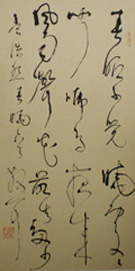 春眠不覺曉處處聞
啼鳥夜来
風雨聲花落知多少
孟浩然春曉